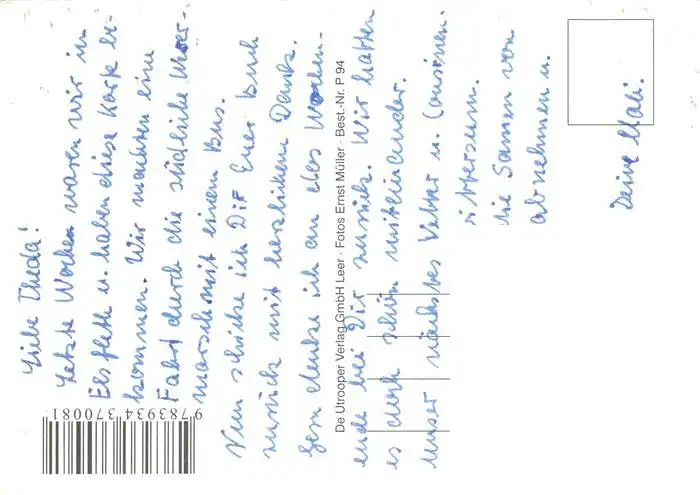 Liebe Theda!
Letzte Woche waren wir in
Elsfleth u. haben diese Karte be-
kommen. Wir machten eine
Fahrt durch die südliche Weser-
marsch mit einem Bus.
Nun schicke ich Dir Euer Buch
zurück mit herzlichem Dank.
Gern denke ich an das Wochen-
ende bei Dir zurück. Wir hatten
es doch schön miteinander.
Unser nächstes Vetter u. Cousinen-
die Samen von
abnehmen u.
Deine
De Utrooper Verlag GmbH Leer · Fotos Ernst Müller · Best.-Nr. P 94
9 783934 370081